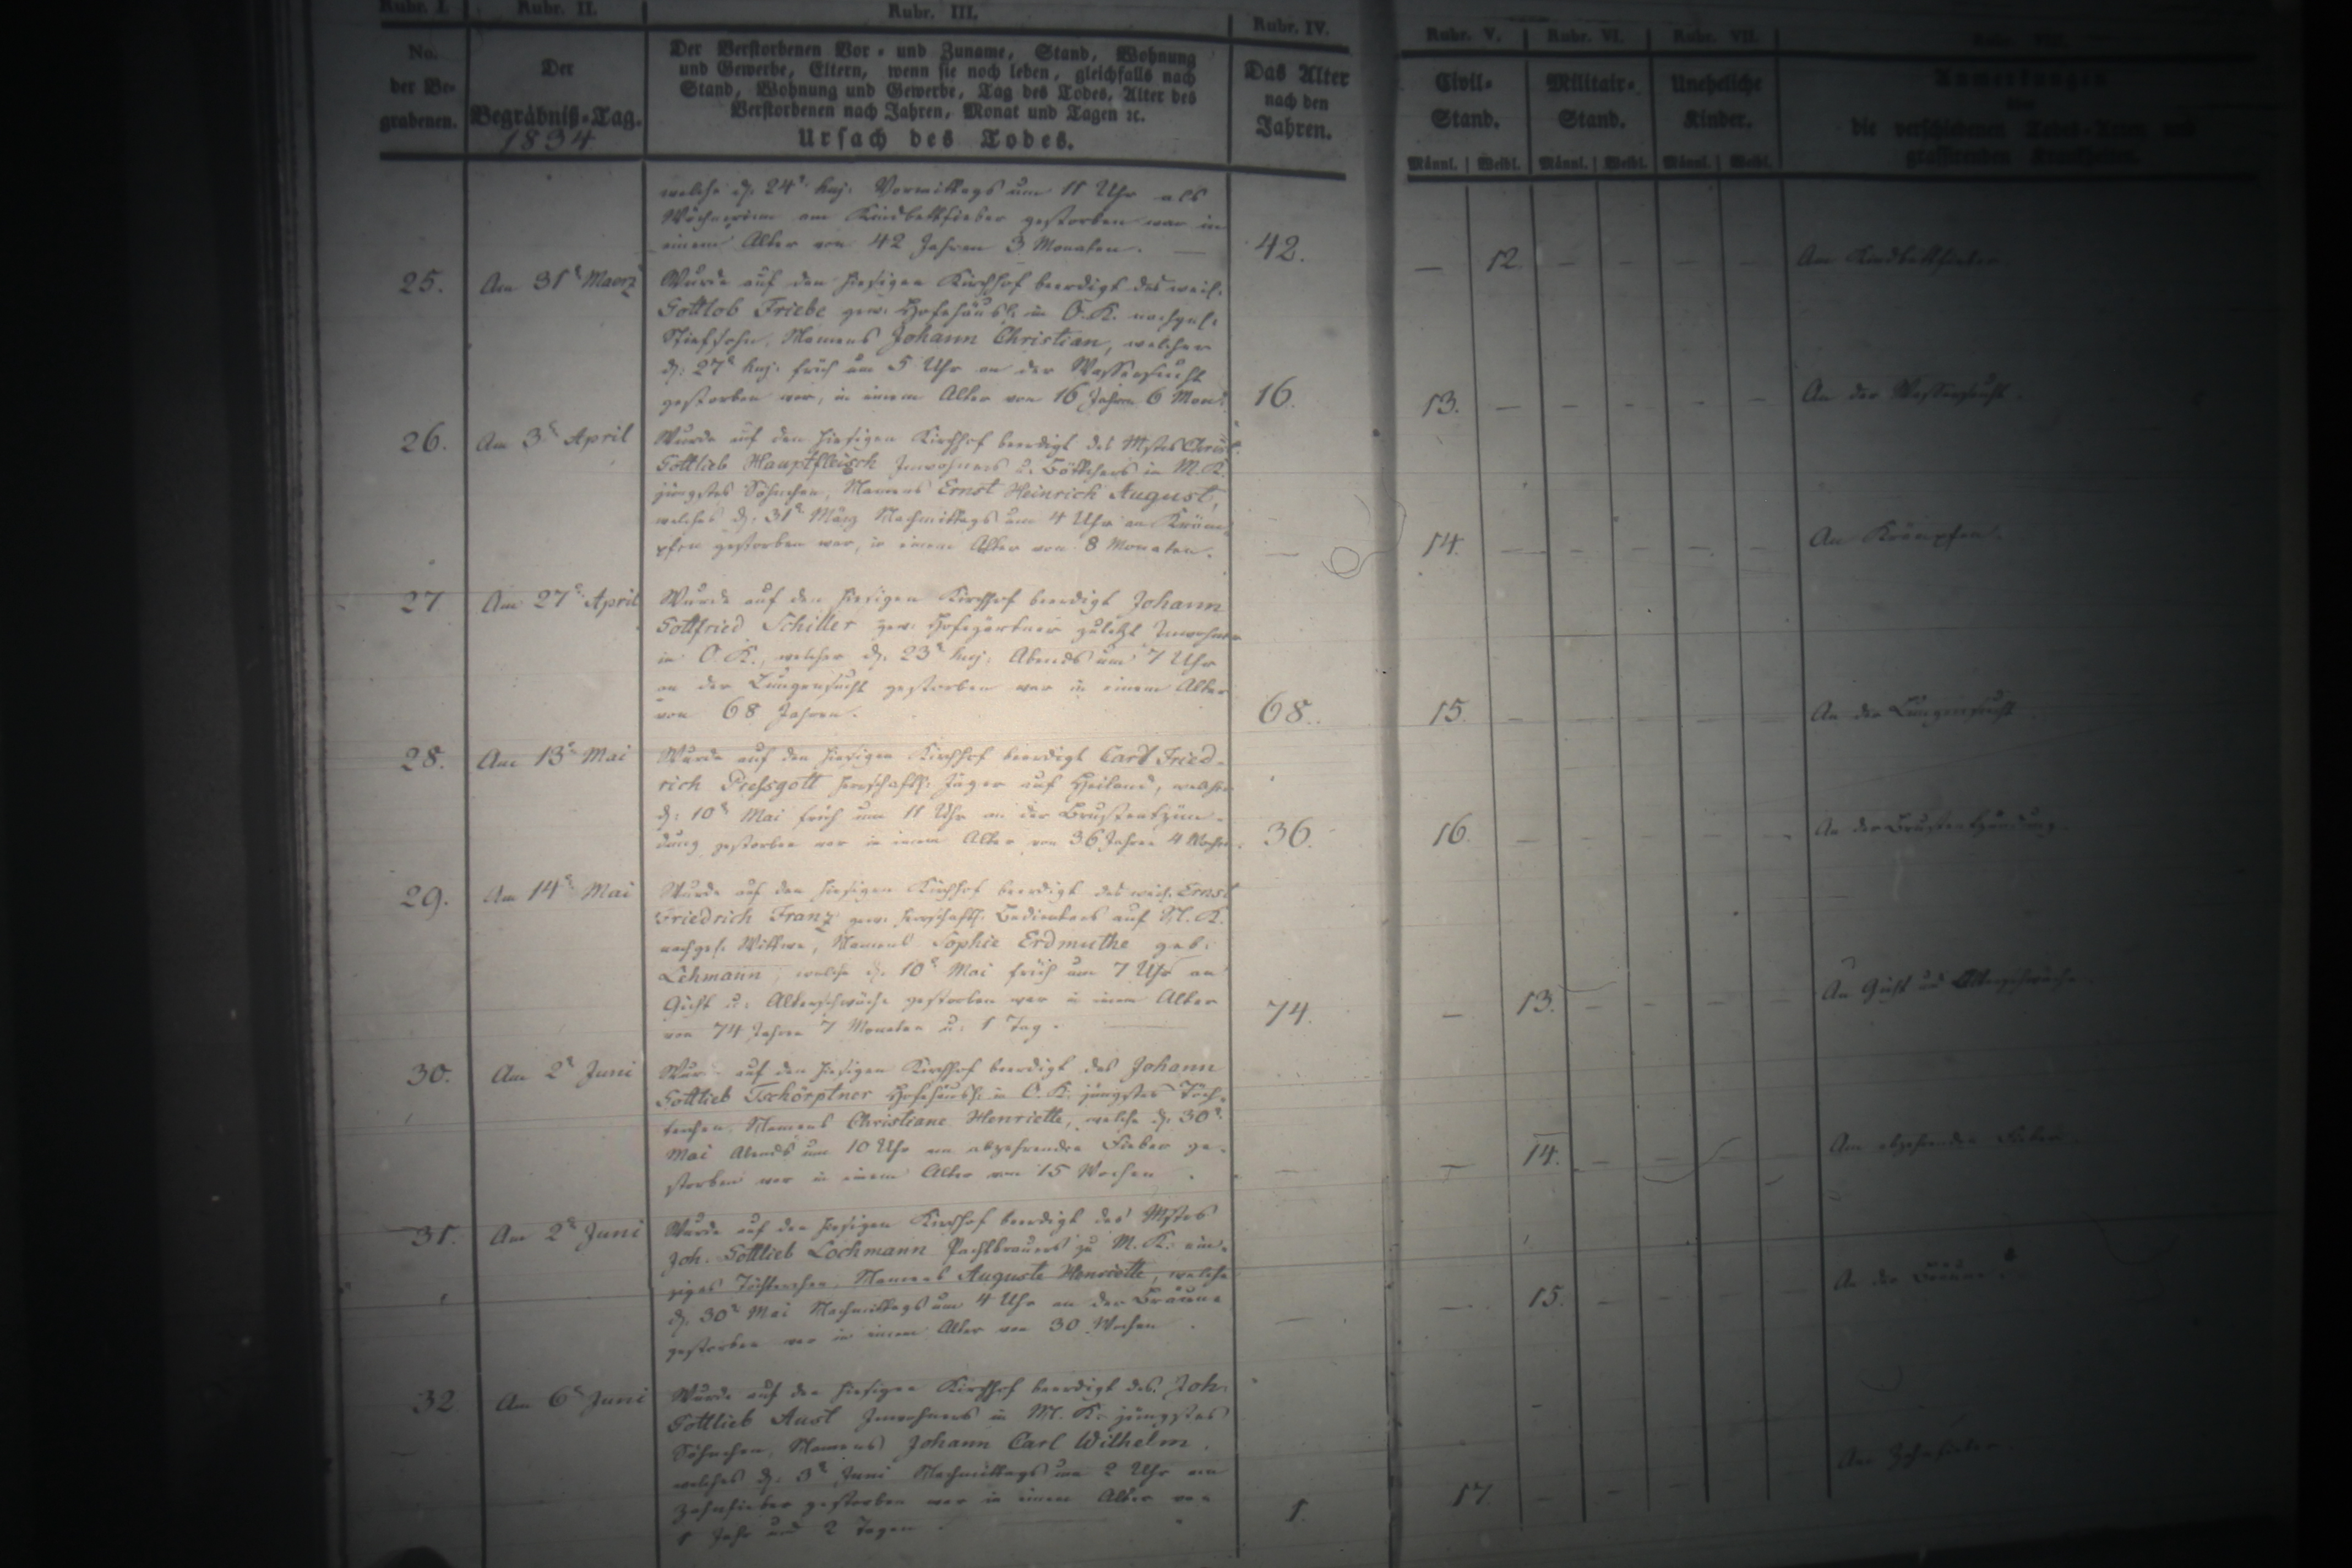 Rubr. I. Rubr. II. Rubr. III. Rubr. IV. Rubr. V. Rubr. VI. Rubr. VII.
No. der Be- grabenen.
Der Begräbniß-Tag.
1834
Der Verstorbenen Vor- und Zuname, Stand, Wohnung
und Gewerbe, Eltern, wenn sie noch leben, gleichfalls nach
Stand, Wohnung und Gewerbe, Tag des Todes, Alter des
Verstorbenen nach Jahren, Monat und Tagen ꝛc.
Ursach des Todes.
Das Alter
nach den
Jahren.
Civil-
Stand.
Männl. Weibl.
Militair-
Stand.
Männl. Weibl.
Uneheliche
Kinder.
Männl. Weibl.
Anmerkungen
die verschiedenen Todes-Arten und
grassirenden Krankheiten.
welche d. 24t huj. Vormittags um 11 Uhr als
Wöchnerinn am Kindbettfieber gestorben war in
einem Alter von 42 Jahren 3 Monaten. 42. — 12. — — — — Am Kindbettfieber
25. Am 31t Maerz Wurde auf den hiesigen Kirchhof beerdigt des weil.
Gottlob Friebe gew. Hofehäusl. in O.K. nachgel.
Stiefsohn, Namens Johann Christian, welcher
d. 27t huj. früh um 5 Uhr an der Wassersucht
gestorben war, in einem Alter von 16 Jahren 6 Mon. 16. 13. — — — — — An der Wassersucht.
26. Am 3t April Wurde auf den hiesigen Kirchhof beerdigt des Mstrs Christ.
Gottlieb Hauptfleisch Inwohners u. Böttchers in M.K.
jüngstes Söhnchen, Namens Ernst Heinrich August,
welches d. 31t März Nachmittags um 4 Uhr an Kräm-
pfen gestorben war, in einem Alter von 8 Monaten. — 14. — — — — — An Krämpfen.
27 Am 27t April Wurde auf den hiesigen Kirchhof beerdigt Johann
Gottfried Schiller gew. Hofegärtner zuletzt Inwohner
in O.K., welcher d. 23t huj. Abends um 7 Uhr
an der Lungensucht gestorben war in einem Alter
von 68 Jahren. 68. 15. — — — — — An der Lungensucht
28. Am 13t Mai Wurde auf den hiesigen Kirchhof beerdigt Carl Fried-
rich herrschaftl. Jäger auf welcher
d. 10t Mai früh um 11 Uhr an der Brustentzün-
dung gestorben war in einem Alter von 36 Jahren 4 Wochen. 36. 16. — — — — — An der Brustentzündung.
29. Am 14t Mai Wurde auf den hiesigen Kirchhof beerdigt des weil. Ernst
Friedrich Franz gew. herrschaftl. Bedienten auf N.K.
nachgel. Wittwe, Namens Sophie Erdmuthe geb.
Lehmann, welche d. 10t Mai früh um 7 Uhr an
Gicht u. Altersschwäche gestorben war in einem Alter
von 74 Jahren 7 Monaten u. 1 Tag. 74. — 13. — — — — An Gicht und Altersschwäche
30. Am 2t Juni Wurde auf den hiesigen Kirchhof beerdigt des Johann
Gottlieb Tschörptner Hofehäusl. in O.K. jüngstes Töch-
terchen, Namens Christiane Henriette, welche d. 30t
Mai Abends um 10 Uhr am abzehrenden Fieber ge-
storben war in einem Alter von 15 Wochen. — — 14. — — — — Am abzehrenden Fieber.
31. Am 2t Juni Wurde auf den hiesigen Kirchhof beerdigt des Mstrs
Joh. Gottlieb Lochmann Pachtbrauers zu M.K. ein-
ziges Töchterchen, Namens Auguste Henriette, welche
d. 30t Mai Nachmittags um 4 Uhr an der Bräune
gestorben war in einem Alter von 30 Wochen. — — 15. — — — — An der Bräune.
32. Am 6t Juni Wurde auf den hiesigen Kirchhof beerdigt des Joh.
Gottlieb Aust Inwohners in M.K. jüngstes
Söhnchen, Namens Johann Carl Wilhelm,
welches d. 3t Juni Nachmittags um 2 Uhr am
Zahnfieber gestorben war in einem Alter von
1 Jahr und 2 Tagen. 1. 17. — — — — — Am Zahnfieber.